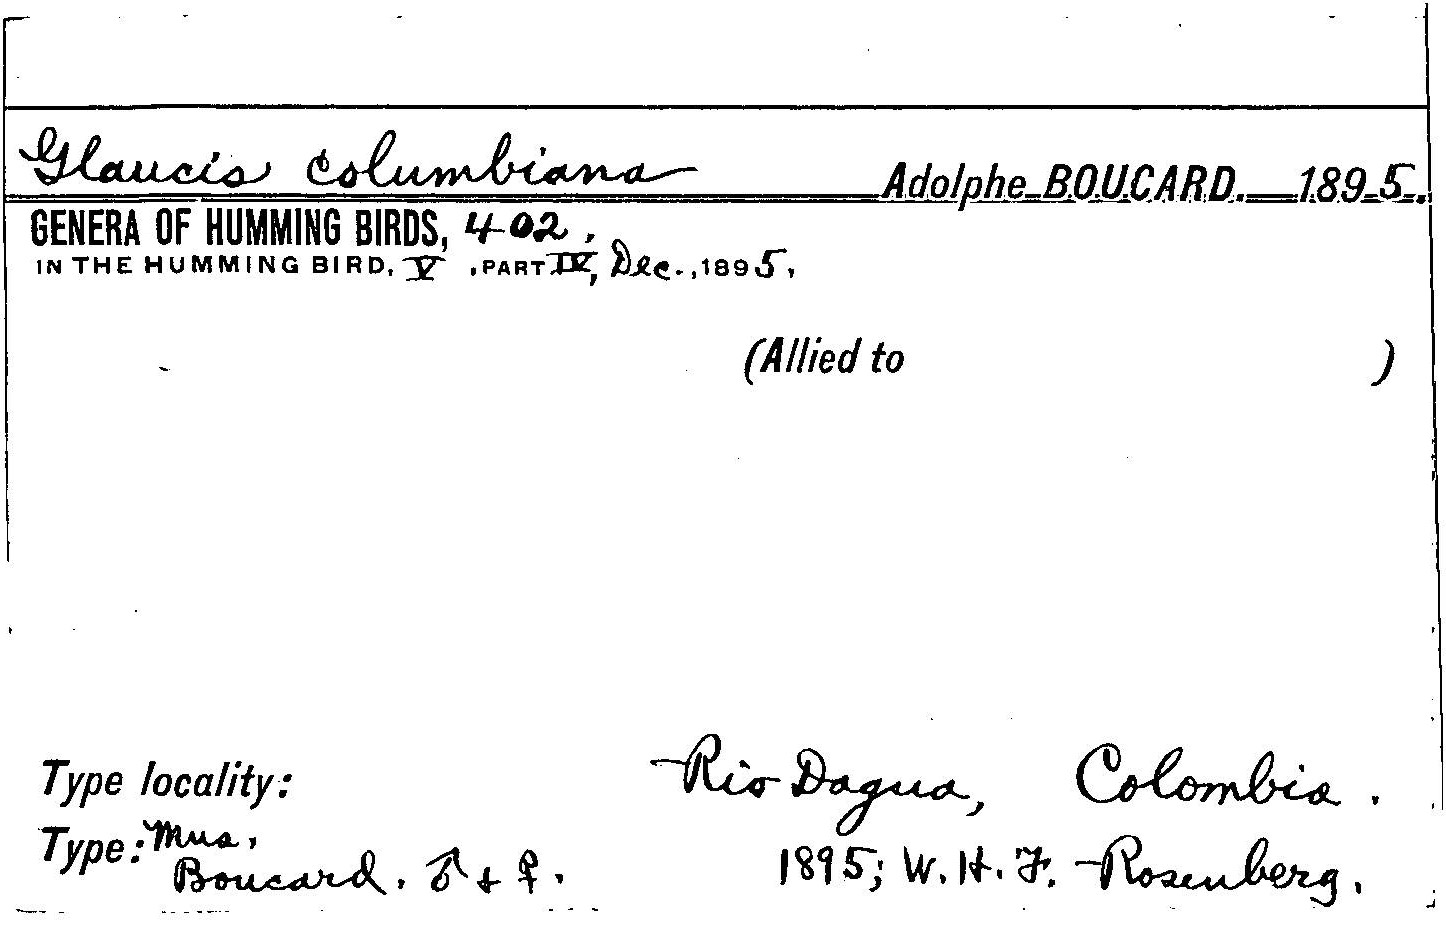 Glaucis columbiana Adolphe BOUCARD. 1895.
GENERA OF HUMMING BIRDS, 402.
IN THE HUMMING BIRD, V, PART IV, Dec., 1895,
(Allied to )
Type locality: Rio Dagua, Colombia.
Type: Mus. Boucard. ♂ + ♀. 1895; W. H. F. Rosenberg.